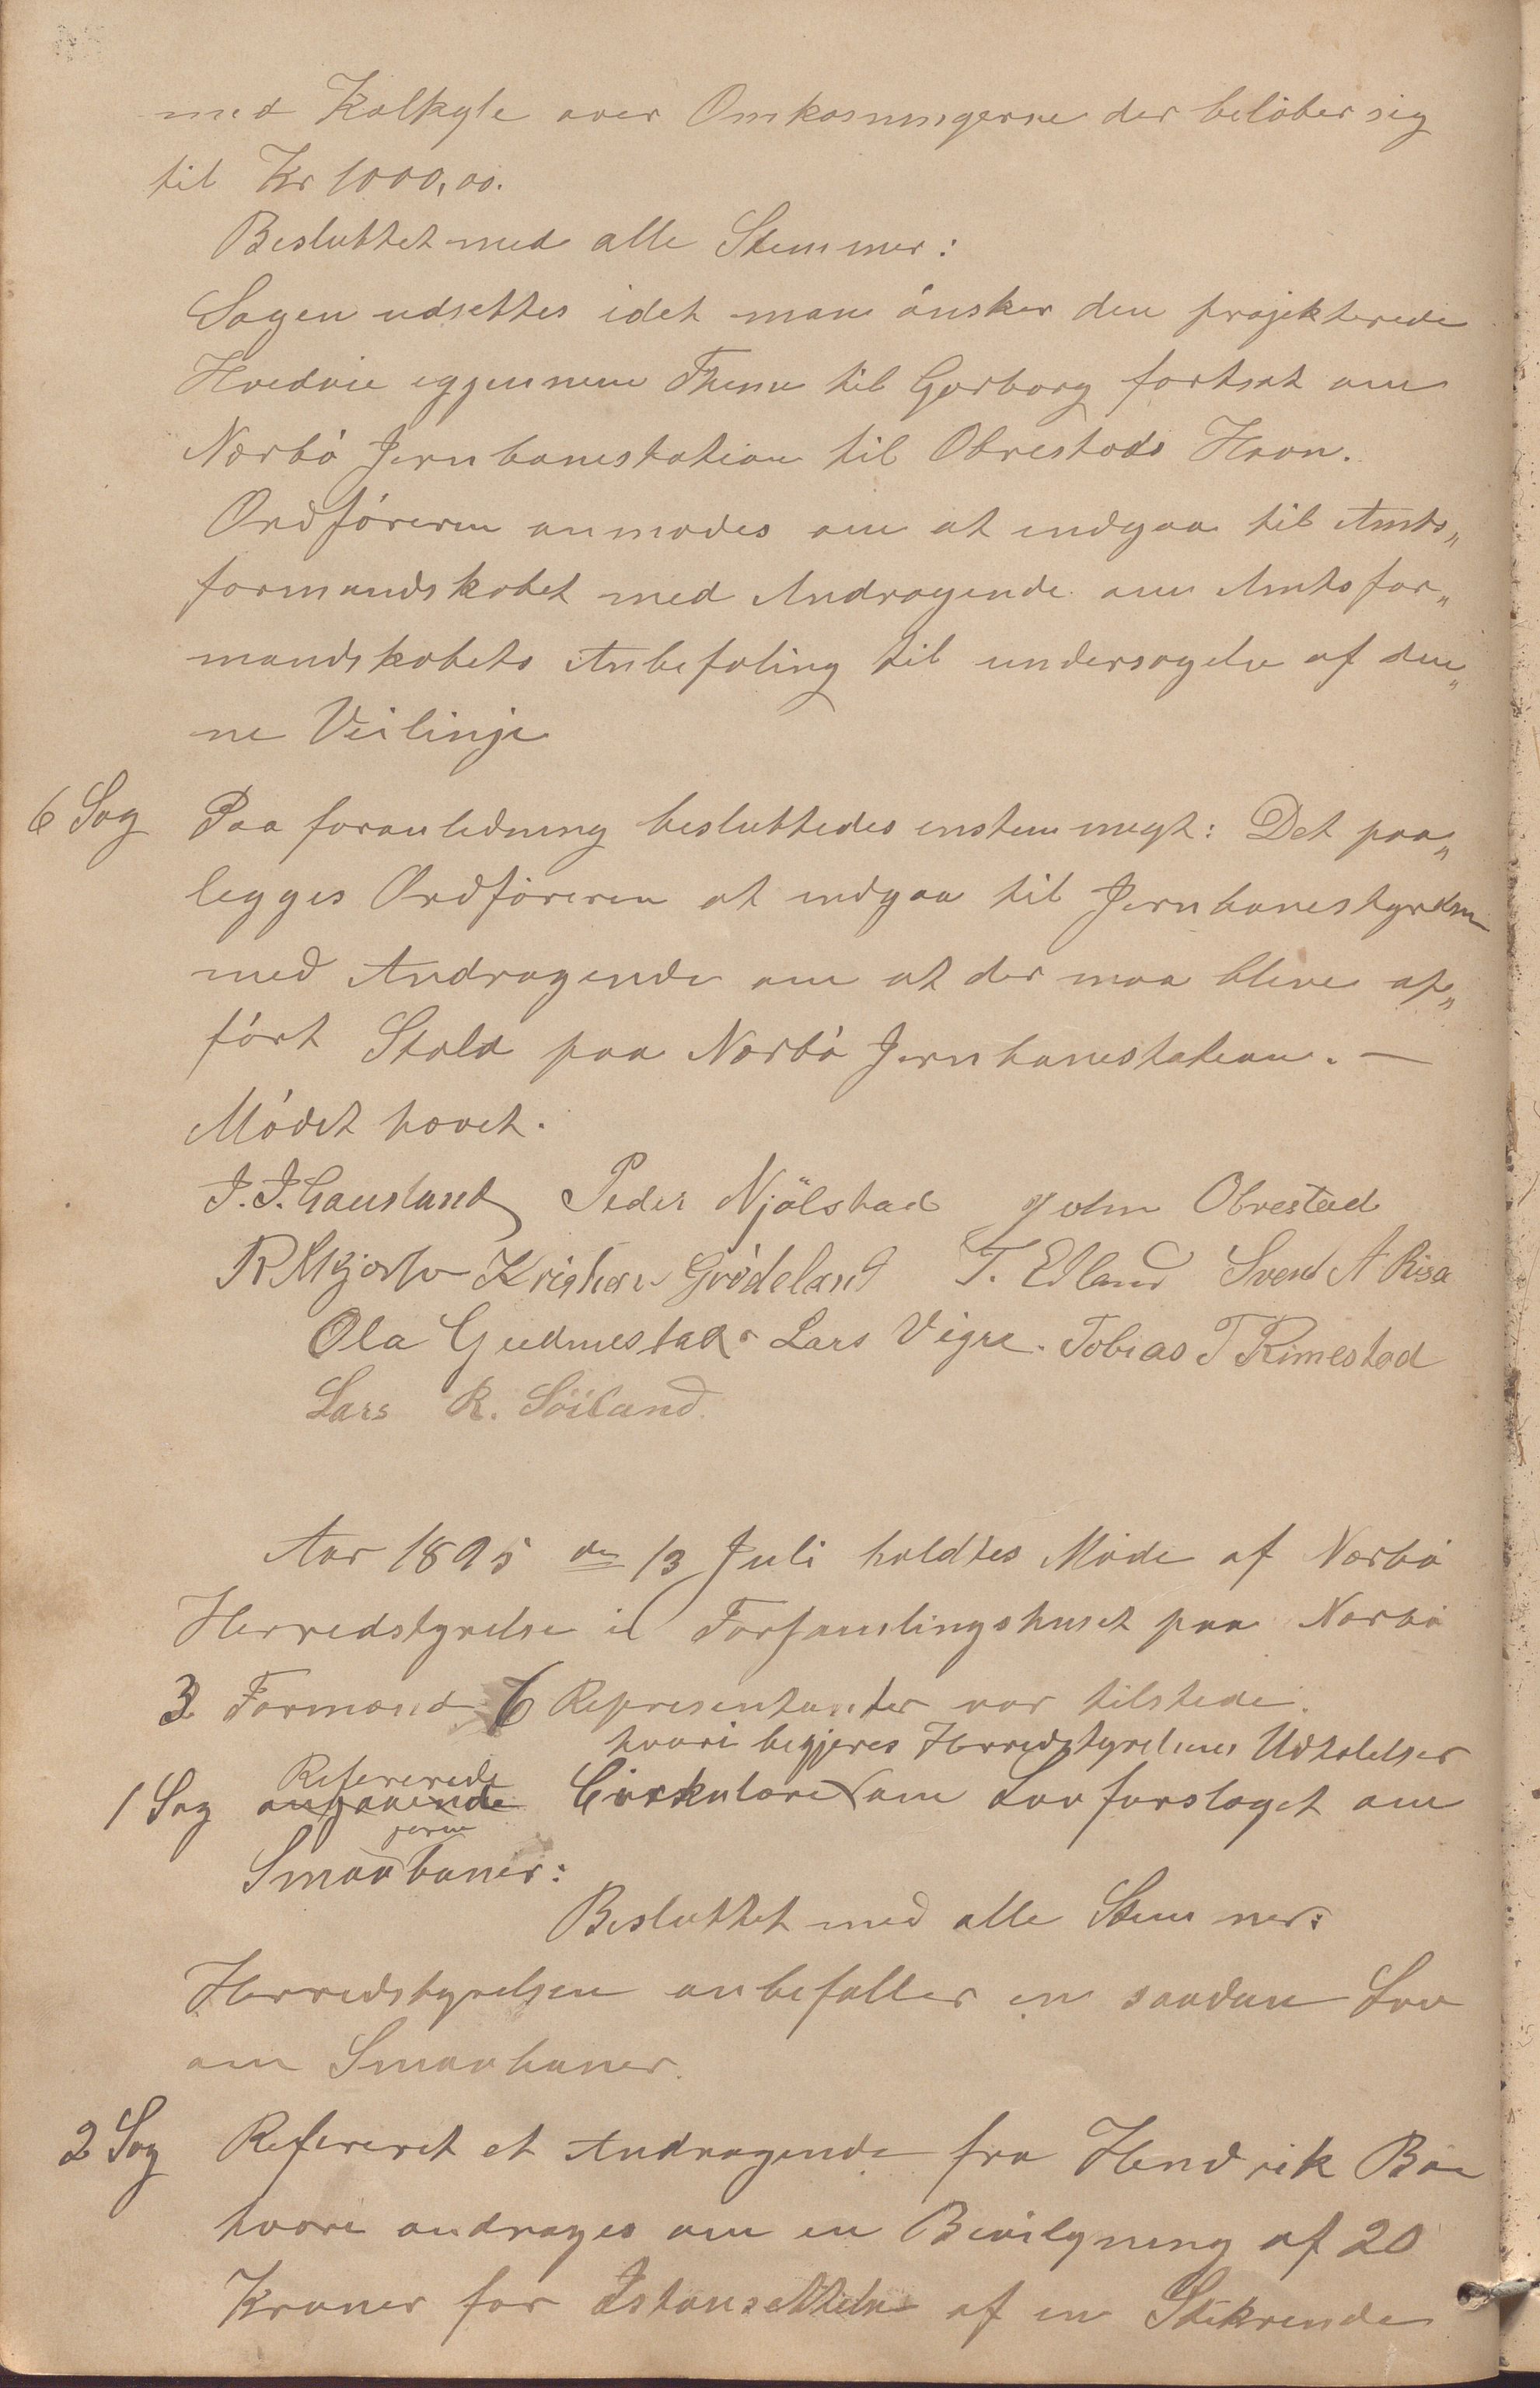 med Kalkyle over Omkosningerne der belöber sig
til Kr 1000,00.
Besluttet med alle Stemmer:
Sagen udsettes idet man önsker den projekterede
Hovedvei igjennem Thime til Garborg fortsat om
Nærbö Jernbanestation til Obrestads Havn.
Ordföreren anmodes om at indgaa til Amts„
formandskabet med Andragende om Amtsfor„
mandskabets Anbefaling til undersøgelse af den„
ne Veilinje
6 Sag Paa foranledning besluttedes enstemmigt: Det paa„
legges Ordföreren at indgaa til Jernbanestyrelsen
med Andragende om at der maa blive op„
fört Stald paa Nærbö Jernbanestation. —
Mödet hævet.
J. J. Gausland Peder Njölstad John Obrestad
Kristian Grödeland T. Edland Svend A Risa
Ola Gudmestad. Lars Vigre. Tobias T Rimestad
Lars R. Söiland.
Aar 1895 den 13 Juli holdtes Möde af Nærbö
Herredstyrelse i Forsamlingshuset paa Nærbö
3 Formænd 6 Representanter var tilstede.
hvori begjeres Herredstyrelsens Udtalelser
Refererede
1 Sag angaaende Cirkulære om Lovforslaget om
jern
Smaabaner:
Besluttet med alle Stemmer:
Herredstyrelsen anbefaller en saadan Lov
om Smaabaner.
2 Sag Refereret et Andragende fra Hendrik Bøe
hvori andrages om en Bevilgning af 20
Kroner for Istansettelse af en Stikrende